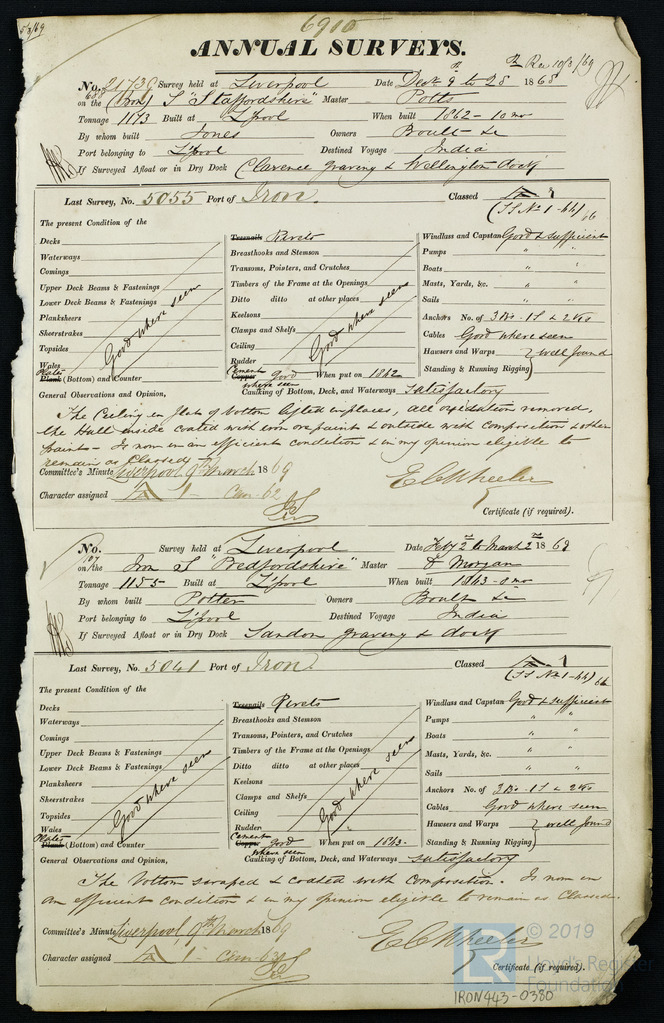 5/3/69
6910
ANNUAL SURVEYS.
Rec 10/3/69
No. 21739 Survey held at Liverpool Date Decr 9 to 28 1868
on the (Iron) S "Staffordshire" Master Potts
Tonnage 1173 Built at L'pool When built 1862 - 10 mo
By whom built Jones Owners Boult &c
Port belonging to L'pool Destined Voyage India
If Surveyed Afloat or in Dry Dock Clarence graving & Wellington dock
Last Survey, No. 5055 Port of Iron. Classed A 1
(SS No 1-64) 66
The present Condition of the
Decks
Waterways
Comings
Upper Deck Beams & Fastenings
Lower Deck Beams & Fastenings
Planksheers
Sheerstrakes
Topsides
Wales
Plates
Plank (Bottom) and Counter
Good where seen
Treenails Rivets
Breasthooks and Stemson
Transoms, Pointers, and Crutches
Timbers of the Frame at the Openings
Ditto ditto at other places
Keelsons
Clamps and Shelfs
Ceiling
Rudder
Good where seen
Cement
Copper good When put on 1862
where seen
Windlass and Capstan Good & sufficient
Pumps " "
Boats " "
Masts, Yards, &c. " "
Sails " "
Anchors No. of 3 Bs. 1S & 2 Ks
Cables Good where seen
Hawsers and Warps } well found
Standing & Running Rigging }
General Observations and Opinion, Caulking of Bottom, Deck, and Waterways satisfactory
The Ceiling in flat of bottom lifted in places, all oxidation removed,
the Hull inside coated with iron ore paint & outside with Composition & other
paint - Is now in an efficient condition & in my opinion eligible to
remain as Classed
Committee's Minute Liverpool 9th March 1869
Character assigned A 1 - 62
E C Wheeler
Certificate (if required).
No. Survey held at Liverpool Date Feby 2nd to March 2nd 1869
on the Iron S "Bedfordshire" Master Morgan
Tonnage 1155 Built at L'pool When built 1863 - mo
By whom built Potter Owners Boult &c
Port belonging to L'pool Destined Voyage India
If Surveyed Afloat or in Dry Dock Sandon graving & dock
Last Survey, No. 5041 Port of Iron. Classed A 1
(SS No 1-64) 66
The present Condition of the
Decks
Waterways
Comings
Upper Deck Beams & Fastenings
Lower Deck Beams & Fastenings
Planksheers
Sheerstrakes
Topsides
Wales
Plates
Plank (Bottom) and Counter
Good where seen
Treenails Rivets
Breasthooks and Stemson
Transoms, Pointers, and Crutches
Timbers of the Frame at the Openings
Ditto ditto at other places
Keelsons
Clamps and Shelfs
Ceiling
Rudder
Good where seen
Cement
Copper good When put on 1863.
where seen
Windlass and Capstan Good & sufficient
Pumps " "
Boats " "
Masts, Yards, &c. " "
Sails " "
Anchors No. of 3 Bs. 1S & 2 Ks
Cables Good where seen
Hawsers and Warps } well found
Standing & Running Rigging }
General Observations and Opinion, Caulking of Bottom, Deck, and Waterways satisfactory
The bottom scraped & coated with Composition. Is now in
an efficient condition & in my opinion eligible to remain as Classed.
Committee's Minute Liverpool, 9th March 1869
Character assigned A 1 - 63
E C Wheeler
Certificate (if required).
© 2019
LR
Lloyd's Register
Foundation
IRON443-0380